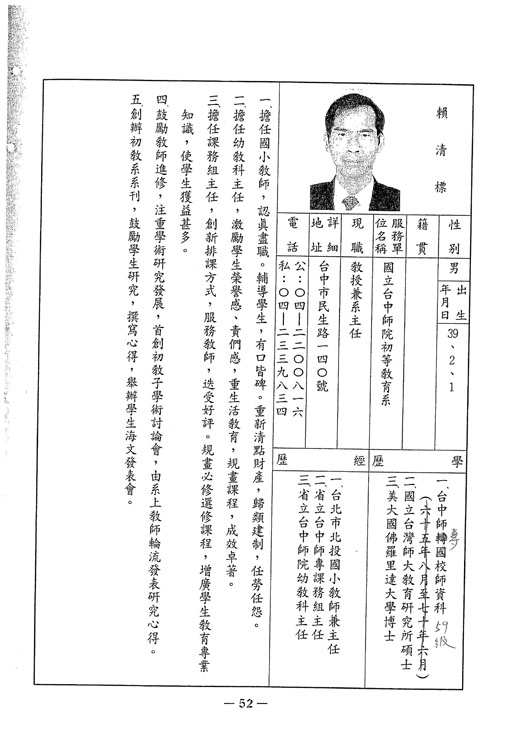 賴清標
性別 男 出生年月日 39、2、1
籍貫
服務單位名稱 國立台中師院初等教育系
現職 教授兼系主任
詳細地址 台中市民生路一四○號
電話 公：○四—二二○○八一六
私：○四—二三三九八三四
學歷
一、台中師轉國校師資科 59級
（六十五年八月至七十年六月）
二、國立台灣師大教育研究所碩士
三、美大國佛羅里達大學博士
經歷
一、台北市北投國小教師兼主任
二、省立台中師專課務組主任
三、省立台中師院幼教科主任
一、擔任國小教師，認真盡職。輔導學生，有口皆碑。重新清點財產，歸類建制，任勞任怨。
二、擔任幼教科主任，激勵學生榮譽感、責們感，重生活教育，規畫課程，成效卓著。
三、擔任課務組主任，創新排課方式，服務教師，迭受好評。規畫必修選修課程，增廣學生教育專業
知識，使學生獲益甚多。
四、鼓勵教師進修，注重學術研究發展，首創初教子學術討論會，由系上教師輪流發表研究心得。
五、創辦初教系系刊，鼓勵學生研究，撰寫心得，舉辦學生海文發表會。
— 52 —